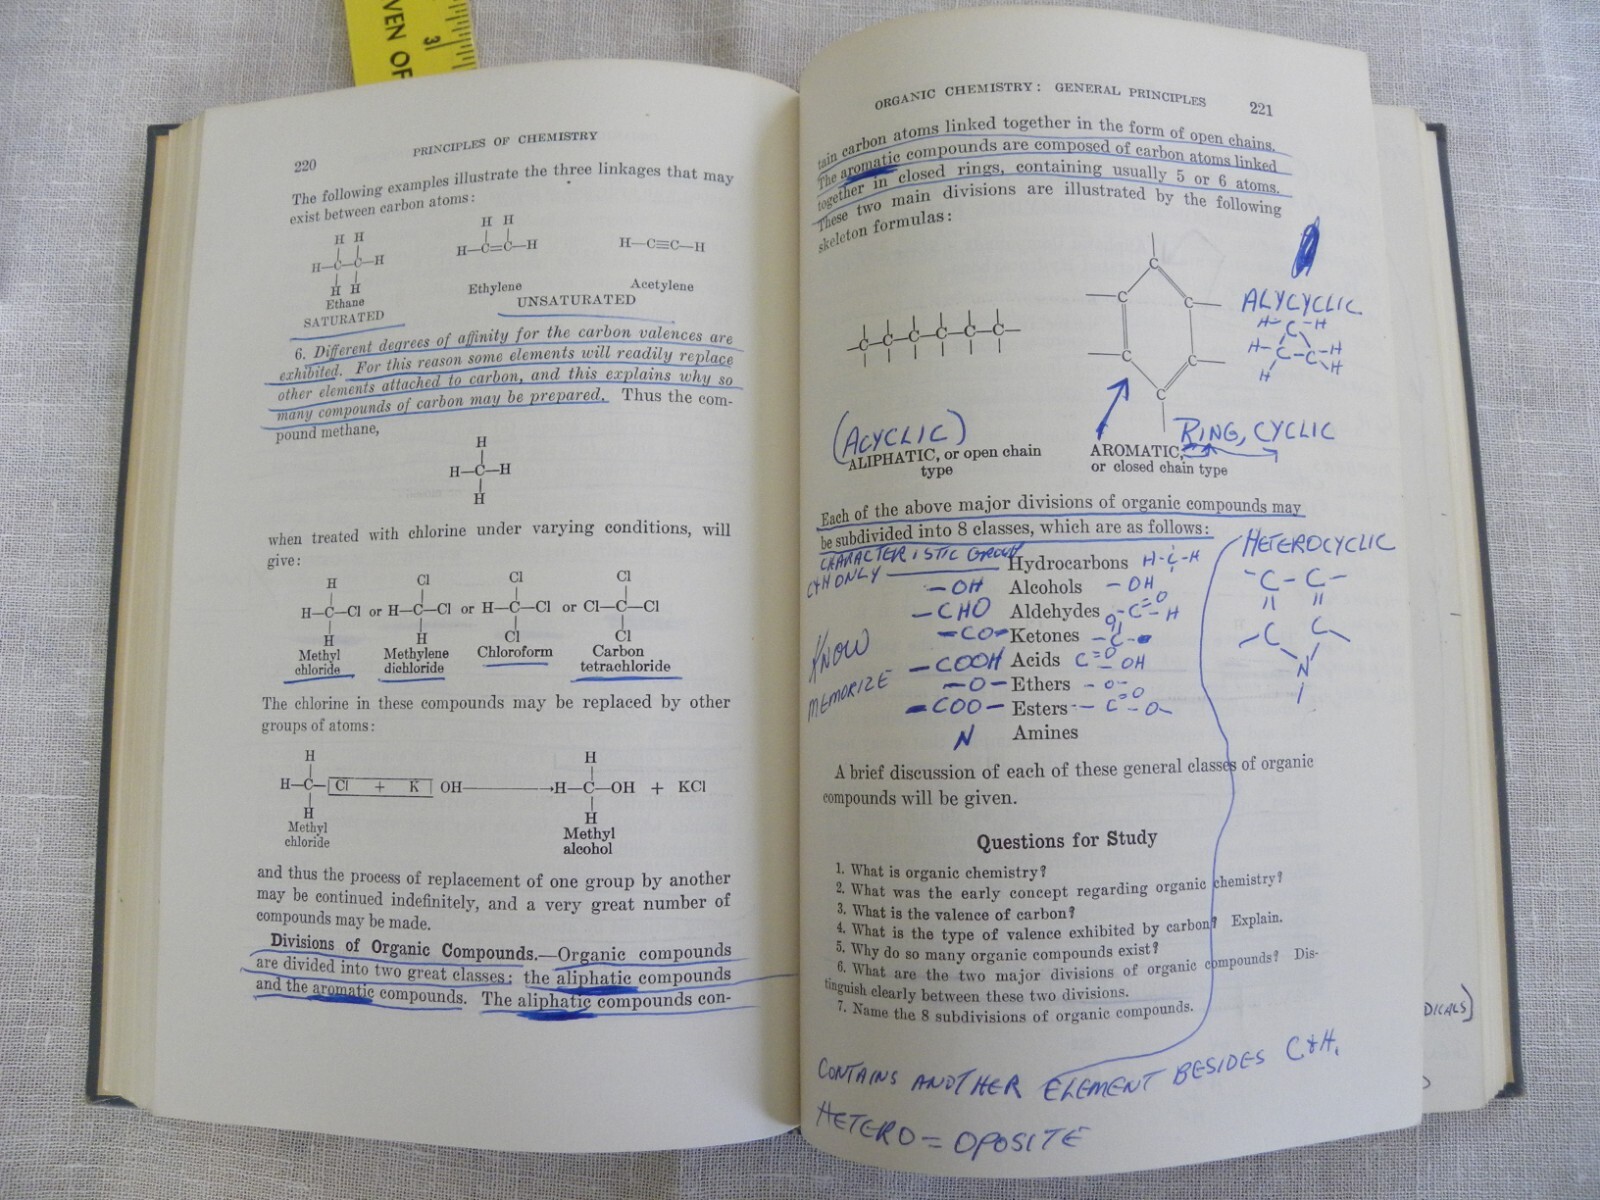 VEN OF
3
220
PRINCIPLES OF CHEMISTRY
The following examples illustrate the three linkages that may
exist between carbon atoms:
H H
H H
H—C—C—H
H—C=C—H
H—C≡C—H
H H
Ethane
Ethylene
Acetylene
SATURATED
UNSATURATED
6. Different degrees of affinity for the carbon valences are
exhibited. For this reason some elements will readily replace
other elements attached to carbon, and this explains why so
many compounds of carbon may be prepared. Thus the com-
pound methane,
H
H—C—H
H
when treated with chlorine under varying conditions, will
give:
H Cl Cl Cl
H—C—Cl or H—C—Cl or H—C—Cl or Cl—C—Cl
H H Cl Cl
Methyl
chloride
Methylene
dichloride
Chloroform
Carbon
tetrachloride
The chlorine in these compounds may be replaced by other
groups of atoms:
H H
H—C—Cl + K OH→H—C—OH + KCl
H H
Methyl
chloride
Methyl
alcohol
and thus the process of replacement of one group by another
may be continued indefinitely, and a very great number of
compounds may be made.
Divisions of Organic Compounds.—Organic compounds
are divided into two great classes: the aliphatic compounds
and the aromatic compounds. The aliphatic compounds con-
ORGANIC CHEMISTRY: GENERAL PRINCIPLES
221
tain carbon atoms linked together in the form of open chains.
The aromatic compounds are composed of carbon atoms linked
together in closed rings, containing usually 5 or 6 atoms.
These two main divisions are illustrated by the following
skeleton formulas:
—C—C—C—C—C—C—
C
C C
C C
C
ALYCYCLIC
H- C -H
H- C - C -H
H H
(ACYCLIC)
ALIPHATIC, or open chain
type
RING, CYCLIC
AROMATIC,
or closed chain type
Each of the above major divisions of organic compounds may
be subdivided into 8 classes, which are as follows:
CHARACTERISTIC GROUP
C&H ONLY — Hydrocarbons H-C-H
-OH Alcohols -OH
-CHO Aldehydes -C=O H
-CO- Ketones -C- O
-COOH Acids C=O OH
-O- Ethers -O-
-COO- Esters -C=O O-
N Amines
KNOW
MEMORIZE
HETEROCYCLIC
-C-C-
C C
N
A brief discussion of each of these general classes of organic
compounds will be given.
Questions for Study
1. What is organic chemistry?
2. What was the early concept regarding organic chemistry?
3. What is the valence of carbon?
4. What is the type of valence exhibited by carbon? Explain.
5. Why do so many organic compounds exist?
6. What are the two major divisions of organic compounds? Dis-
tinguish clearly between these two divisions.
7. Name the 8 subdivisions of organic compounds.
CONTAINS ANOTHER ELEMENT BESIDES C&H.
HETERO = OPOSITE
DICALS)